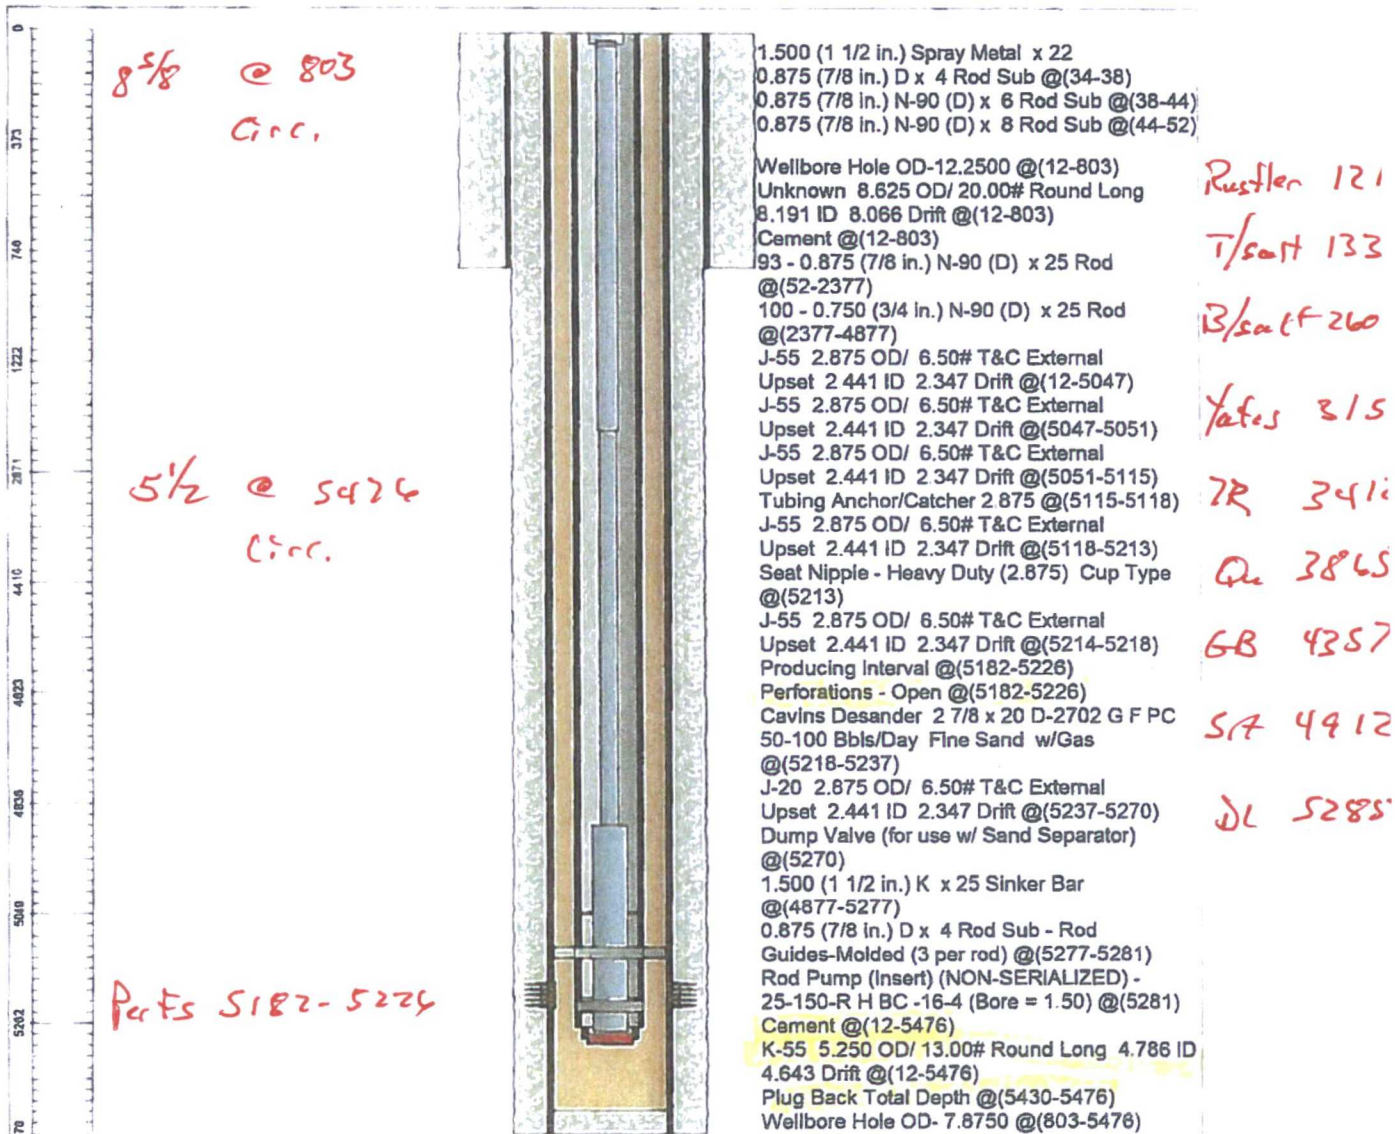 0
373
740
1222
2871
4410
4623
4836
5049
5262
70
8 5/8 @ 803
Circ.
5 1/2 @ 5476
Circ.
Perfs 5182-5226
1.500 (1 1/2 in.) Spray Metal x 22
0.875 (7/8 in.) D x 4 Rod Sub @(34-38)
0.875 (7/8 in.) N-90 (D) x 6 Rod Sub @(38-44)
0.875 (7/8 in.) N-90 (D) x 8 Rod Sub @(44-52)
Wellbore Hole OD-12.2500 @(12-803)
Unknown 8.625 OD/ 20.00# Round Long
8.191 ID 8.066 Drift @(12-803)
Cement @(12-803)
93 - 0.875 (7/8 in.) N-90 (D) x 25 Rod
@(52-2377)
100 - 0.750 (3/4 in.) N-90 (D) x 25 Rod
@(2377-4877)
J-55 2.875 OD/ 6.50# T&C External
Upset 2.441 ID 2.347 Drift @(12-5047)
J-55 2.875 OD/ 6.50# T&C External
Upset 2.441 ID 2.347 Drift @(5047-5051)
J-55 2.875 OD/ 6.50# T&C External
Upset 2.441 ID 2.347 Drift @(5051-5115)
Tubing Anchor/Catcher 2.875 @(5115-5118)
J-55 2.875 OD/ 6.50# T&C External
Upset 2.441 ID 2.347 Drift @(5118-5213)
Seat Nipple - Heavy Duty (2.875) Cup Type
@(5213)
J-55 2.875 OD/ 6.50# T&C External
Upset 2.441 ID 2.347 Drift @(5214-5218)
Producing Interval @(5182-5226)
Perforations - Open @(5182-5226)
Cavins Desander 2 7/8 x 20 D-2702 G F PC
50-100 Bbls/Day Fine Sand w/Gas
@(5218-5237)
J-20 2.875 OD/ 6.50# T&C External
Upset 2.441 ID 2.347 Drift @(5237-5270)
Dump Valve (for use w/ Sand Separator)
@(5270)
1.500 (1 1/2 in.) K x 25 Sinker Bar
@(4877-5277)
0.875 (7/8 in.) D x 4 Rod Sub - Rod
Guides-Molded (3 per rod) @(5277-5281)
Rod Pump (Insert) (NON-SERIALIZED) -
25-150-R H BC -16-4 (Bore = 1.50) @(5281)
Cement @(12-5476)
K-55 5.250 OD/ 13.00# Round Long 4.786 ID
4.643 Drift @(12-5476)
Plug Back Total Depth @(5430-5476)
Wellbore Hole OD- 7.8750 @(803-5476)
Rustler 121
T/salt 133
B/salt 260
Yates 315
7R
Qu 3865
GB 4357
SA 4912
DL 5285